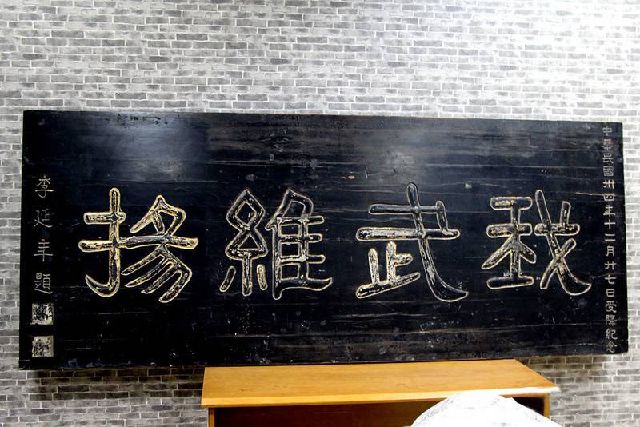 中華民國卅四年十二月廿七日受降紀念
我武維揚
李延年題